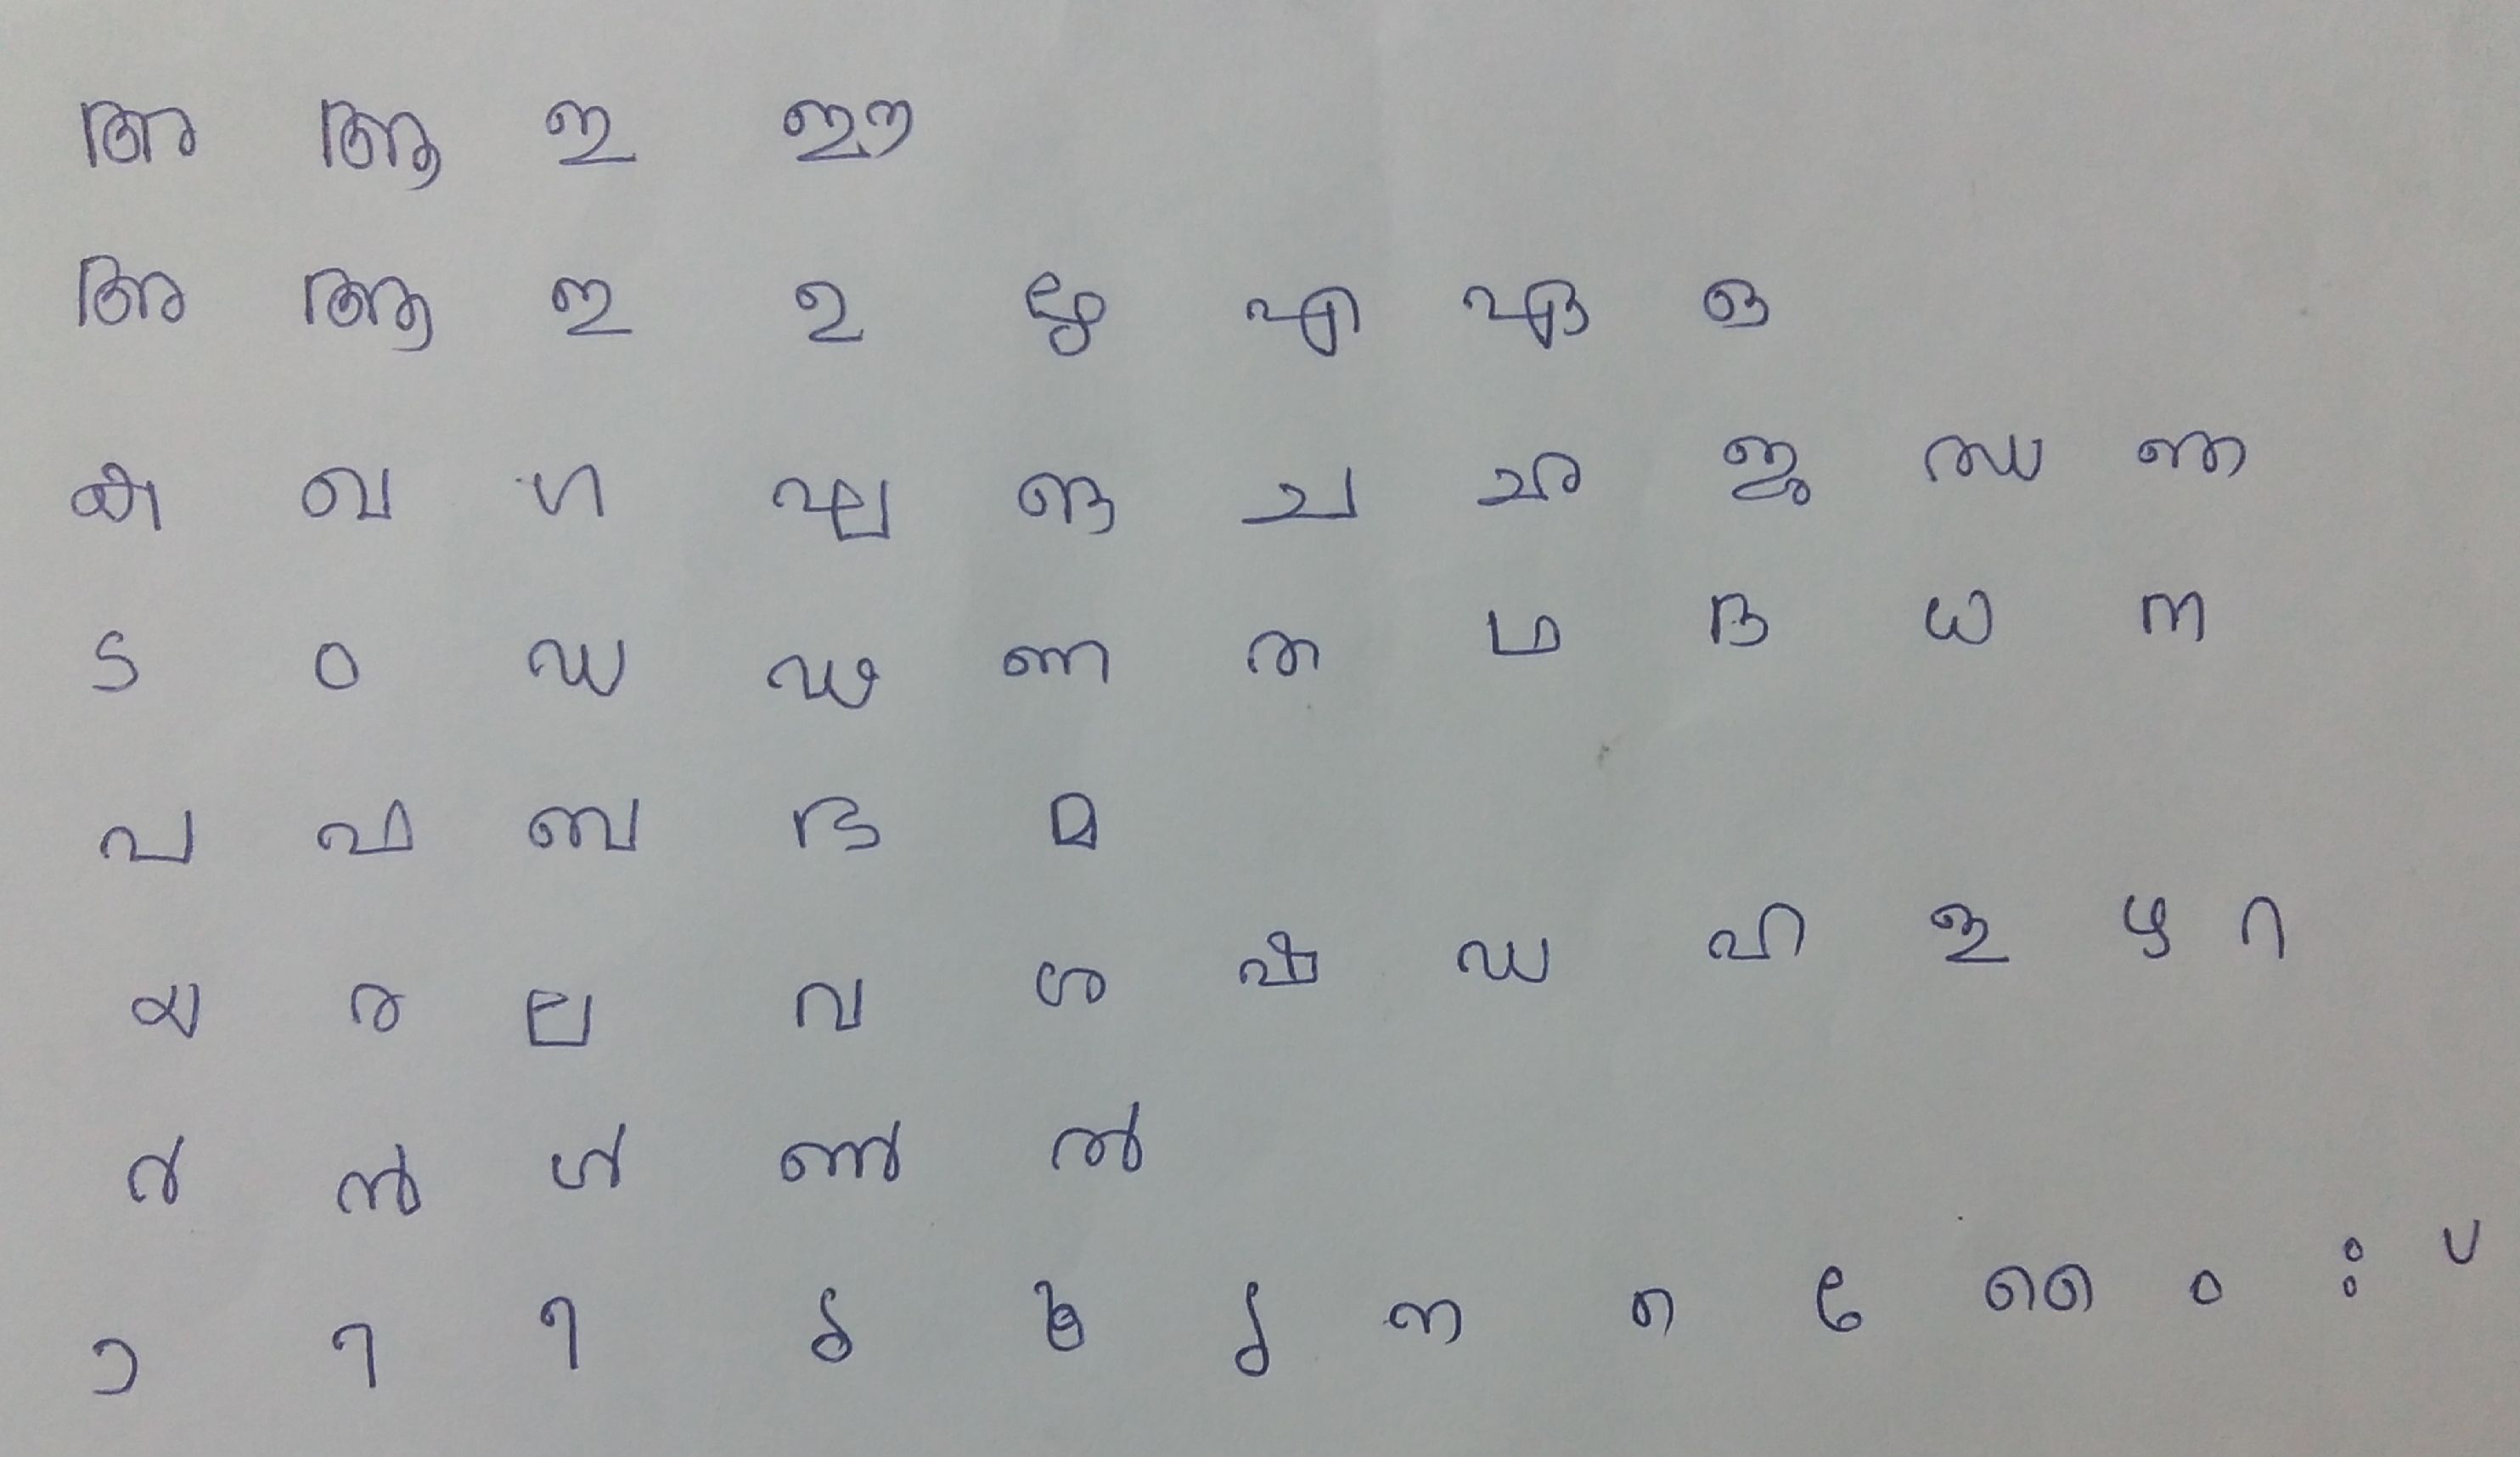 അ ആ ഇ ഈ
അ ആ ഇ ഉ ഋ എ ഏ ഒ
ക ഖ ഗ ഘ ങ ച ഛ ജ ഝ ഞ
ട ഠ ഡ ഢ ണ ത ഥ ദ ധ ന
പ ഫ ബ ഭ മ
യ ര ല വ ശ ഷ സ ഹ ള ഴ റ
ർ ൻ ൾ ൺ ൽ
ാ ി ീ ു ൂ ൃ ൗ െ േ ൈ ം ഃ ്